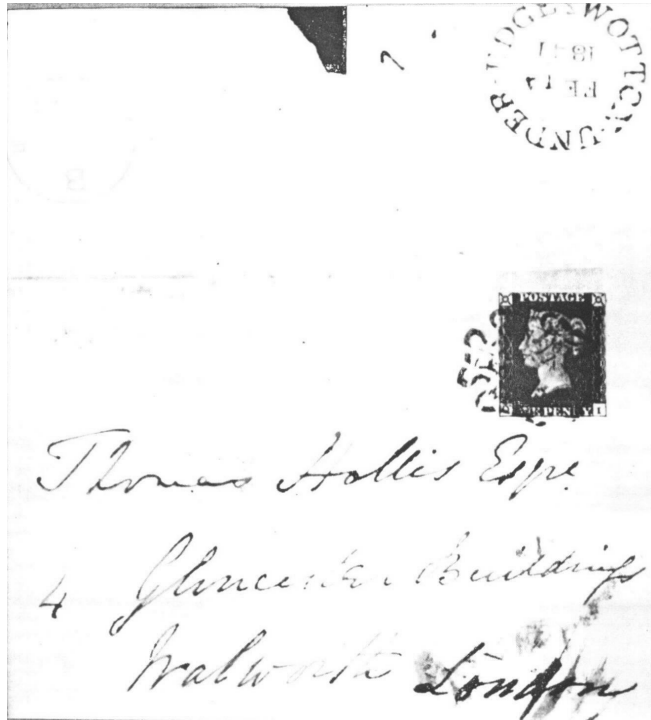 WOTTON-UNDER-EDGE
FE 14
1841
POSTAGE
ONE PENNY
I
Thomas Hollis Esqre
4 Gloucester Buildings
Walworth London